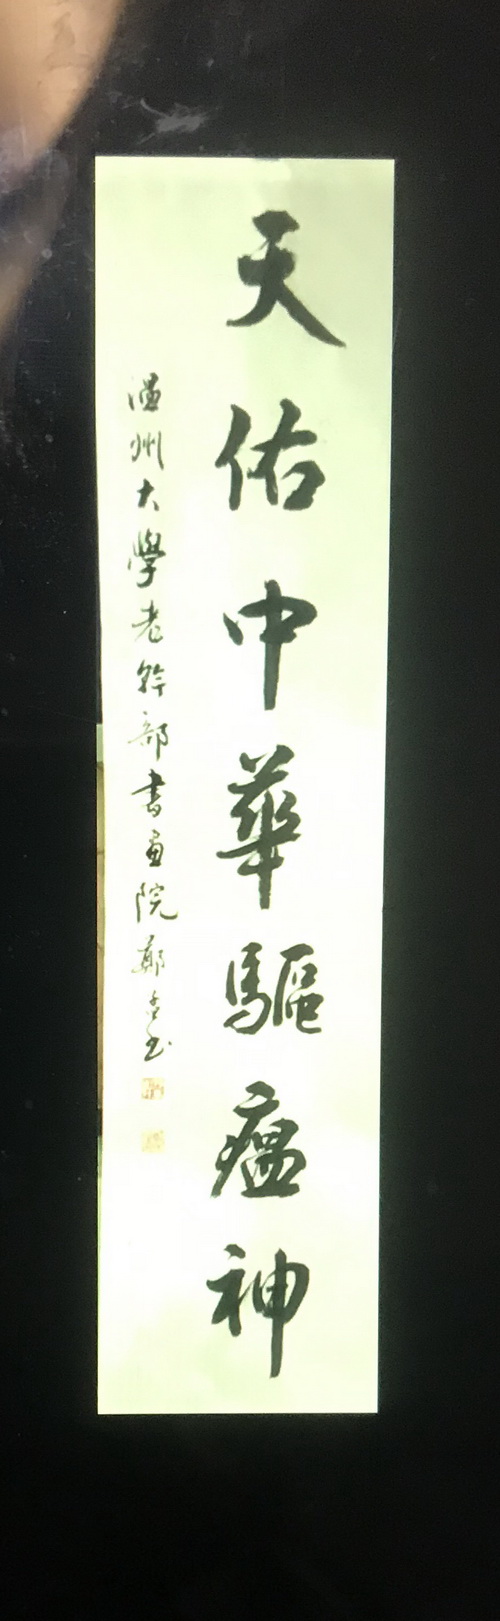 天佑中華驅瘟神
温州大學老幹部書画院鄭